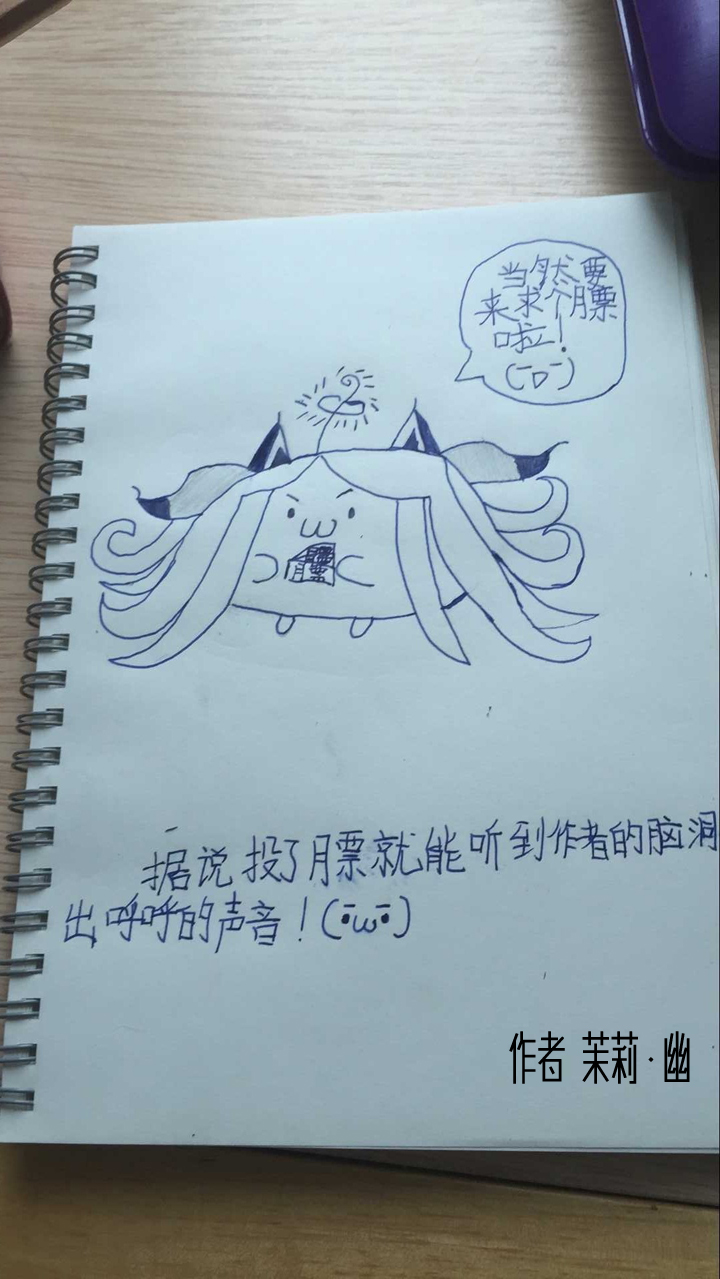 当然要
来求个膘
啦！
(￣D￣)
膘
据说投了膘就能听到作者的脑洞
出呼呼的声音！(•̄ω•̄)
作者 茉莉·幽